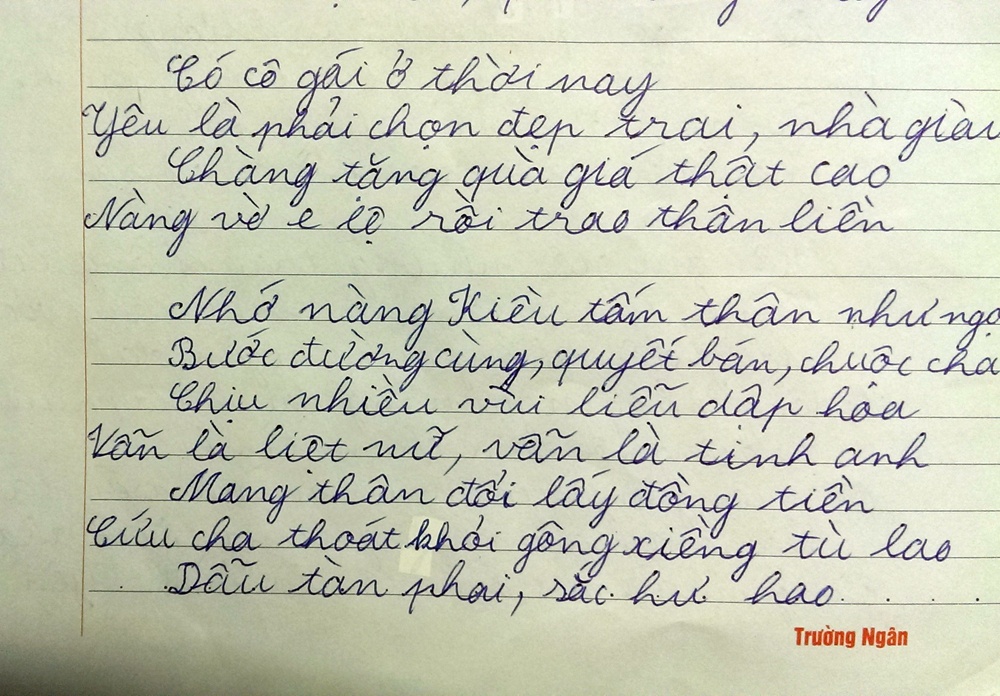 Có cô gái ở thời nay
Yêu là phải chọn đẹp trai, nhà giàu
Chàng tặng quà giá thật cao
Nàng vờ e lệ rồi trao thân liền
Nhớ nàng Kiều tấm thân như ngọ
Bước đường cùng, quyết bán, chuộc cha
Chịu nhiều vùi liễu dập hoa
Vẫn là liệt nữ, vẫn là tinh anh
Mang thân đổi lấy đồng tiền
Cứu cha thoát khỏi gông xiềng tù lao
Dẫu tàn phai, sắc hư hao
Trường Ngân